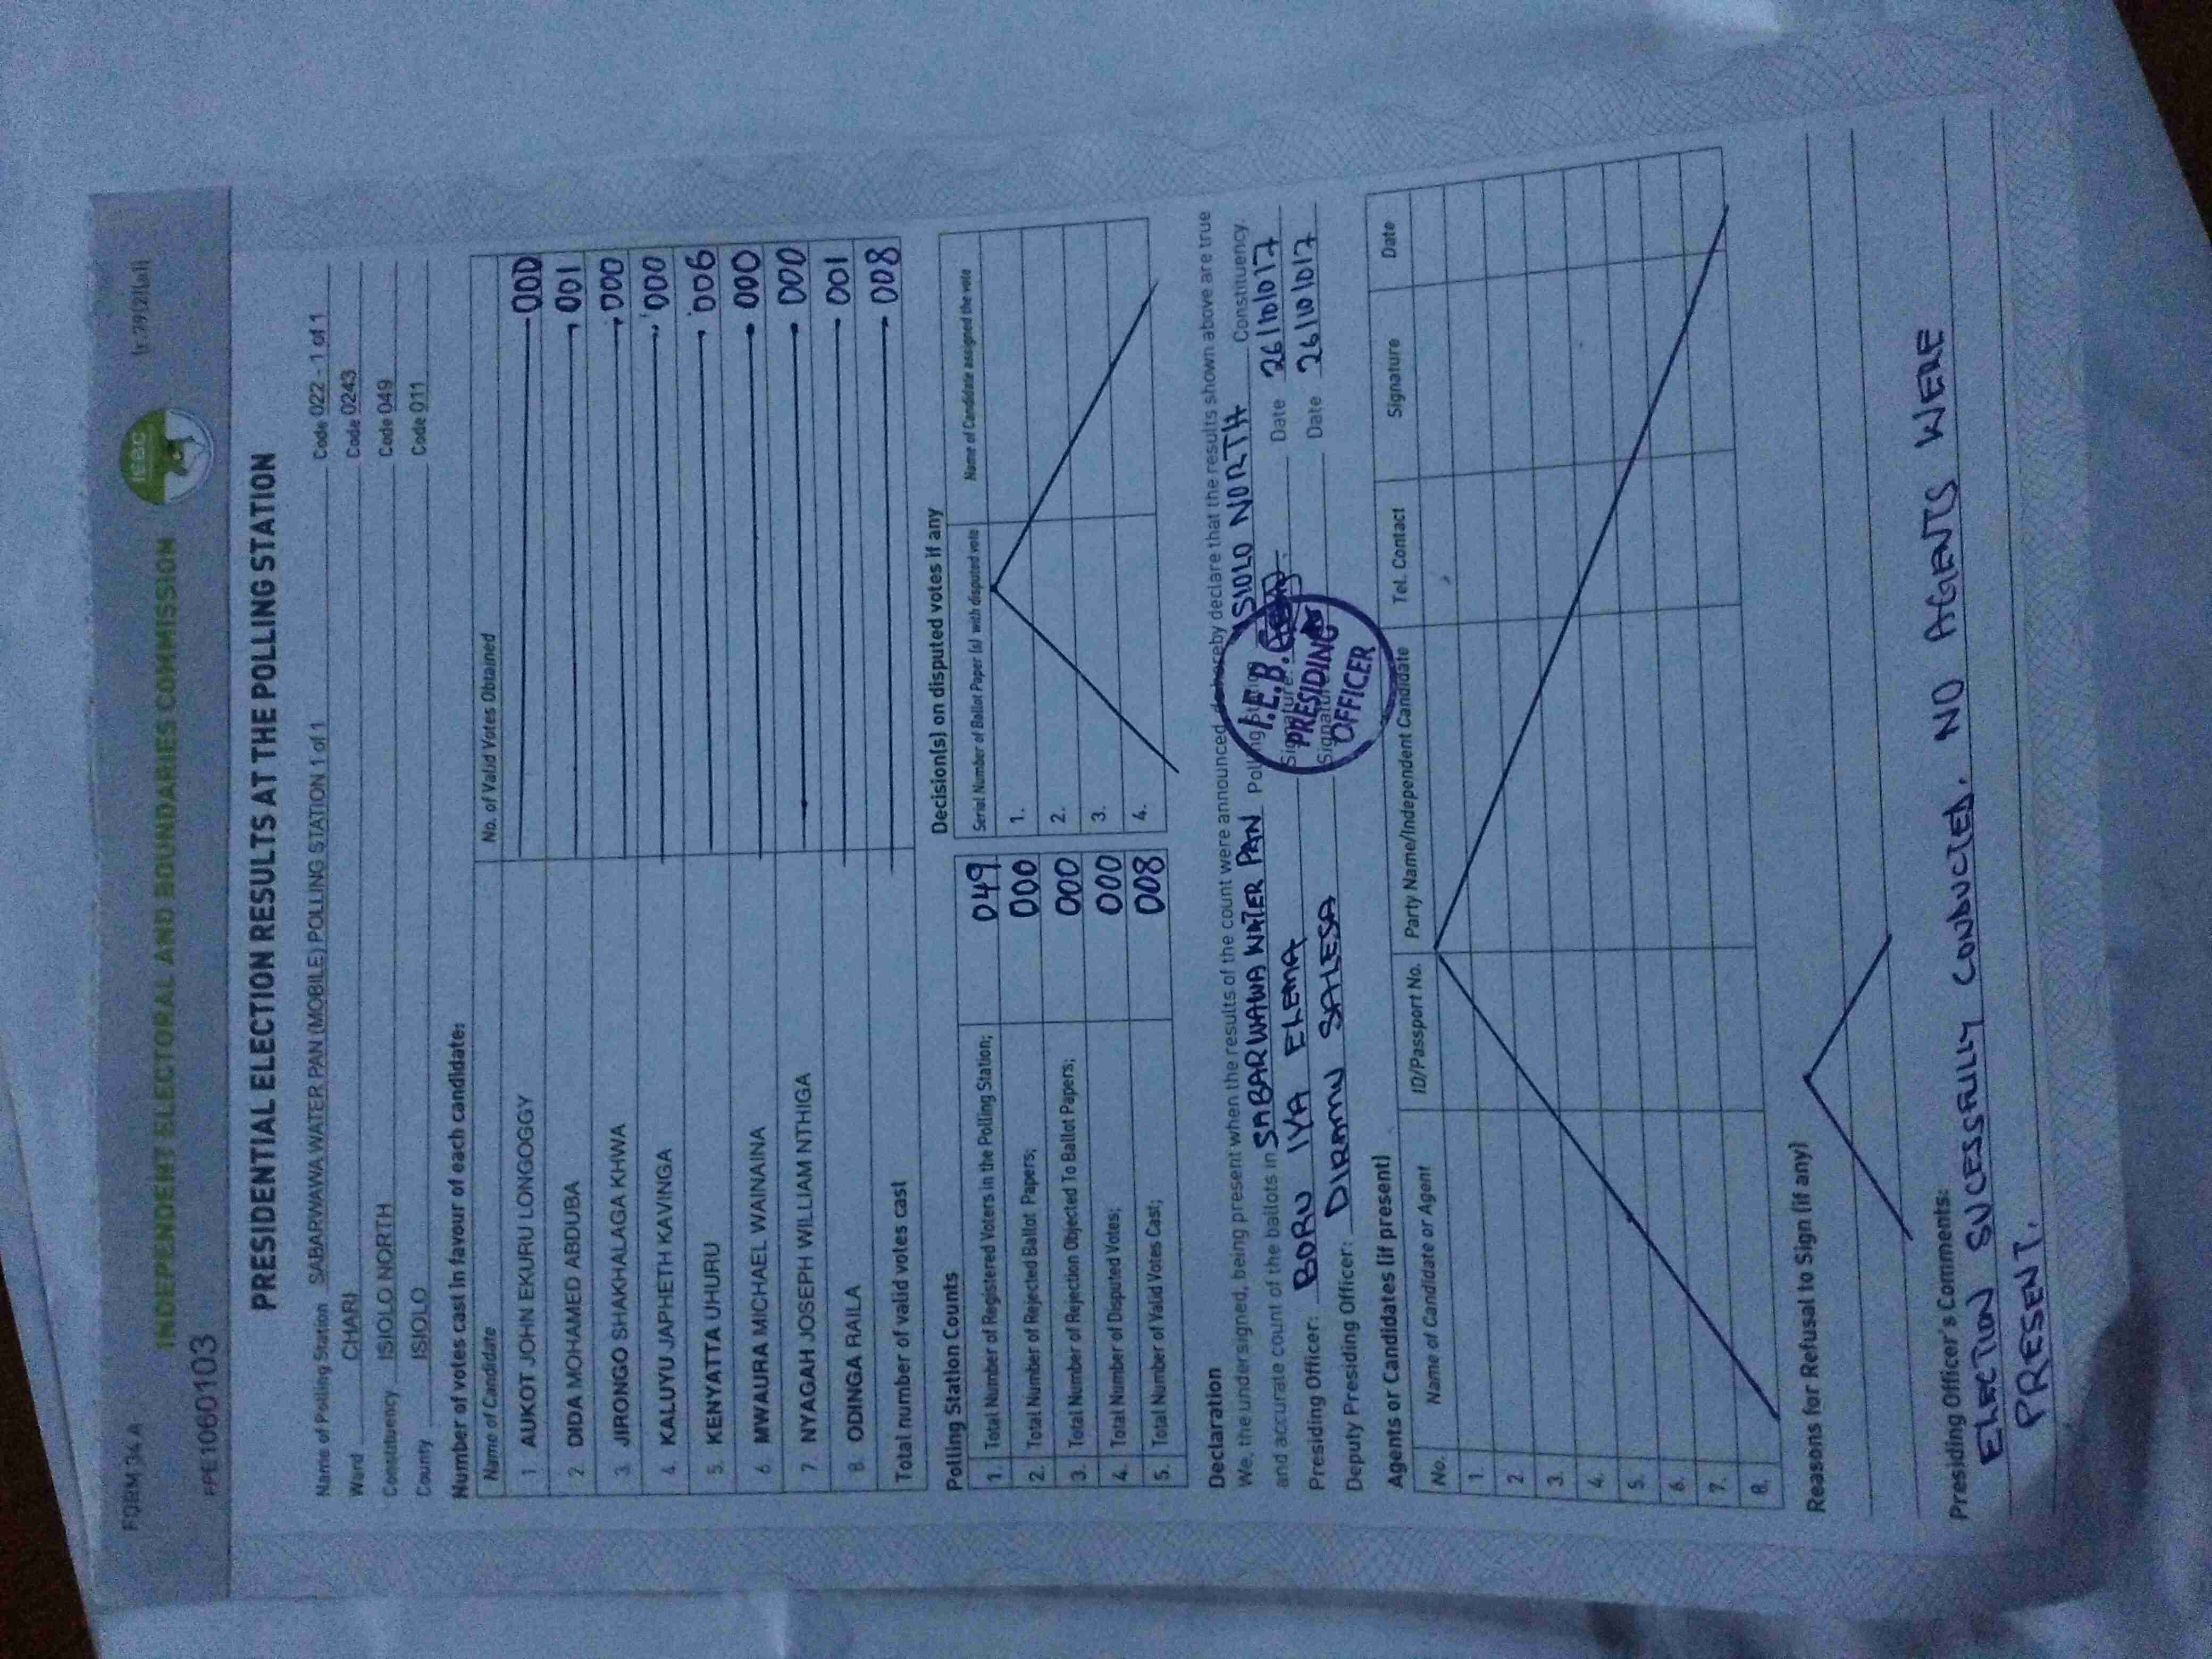 FORM 34 A
INDEPENDENT ELECTORAL AND BOUNDARIES COMMISSION
IEBC
PRESIDENTIAL ELECTION RESULTS AT THE POLLING STATION
Name of Polling Station SABARWAWA WATER PAN (MOBILE) POLLING STATION 1 of 1 Code 022 - 1 of 1
Ward CHARI Code 0243
Constituency ISIOLO NORTH Code 049
County ISIOLO Code 011
Number of votes cast in favour of each candidate:
Name of Candidate No. of Valid Votes Obtained
1 AUKOT JOHN EKURU LONGOGGY 000
2. DIDA MOHAMED ABDUBA 001
3. JIRONGO SHAKHALAGA KHWA 000
4. KALUYU JAPHETH KAVINGA 000
5. KENYATTA UHURU 006
6 MWAURA MICHAEL WAINAINA 000
7 NYAGAH JOSEPH WILLIAM NTHIGA 000
8 ODINGA RAILA 001
Total number of valid votes cast 008
Polling Station Counts
1. Total Number of Registered Voters in the Polling Station; 049
2. Total Number of Rejected Ballot Papers; 000
3. Total Number of Rejection Objected To Ballot Papers; 000
4. Total Number of Disputed Votes; 000
5. Total Number of Valid Votes Cast; 008
Decision(s) on disputed votes if any
Serial Number of Ballot Paper (s) with disputed vote Name of Candidate assigned the vote
1.
2.
3.
4.
Declaration
We, the undersigned, being present when the results of the count were announced, do hereby declare that the results shown above are true
and accurate count of the ballots in SABARWAWA WATER PAN Polling Station ISIOLO NORTH Constituency.
Presiding Officer: BORU IYA ELEMA Signature: Date 26/10/017
Deputy Presiding Officer: DIRAMU SALESA Signature Date 26/10/017
I.E.B.C
PRESIDING
OFFICER
Agents or Candidates (if present)
No. Name of Candidate or Agent ID/Passport No. Party Name/Independent Candidate Tel. Contact Signature Date
1.
2
3.
4.
5.
6.
7.
8.
Reasons for Refusal to Sign (if any)
Presiding Officer's Comments:
ELECTION SUCESSFULLY CONDUCTED. NO AGENTS WERE
PRESENT.